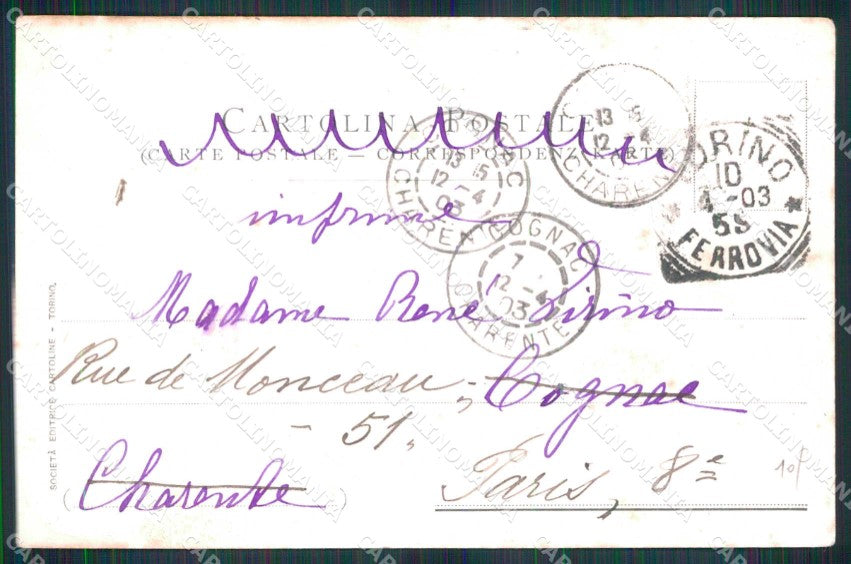 CARTOLINA POSTALE
(CARTE POSTALE — CORRESPONDENZKARTE)
COGNAC
13 15
12 - 4
03
CHARENTE
13
12 - 4
CHARENTE
TORINO
10
4 - 03
5S
FERROVIA
imprimé
COGNAC
7
12 - 4
03
CHARENTE
Madame René
Rue de Monceau, Cognac
- 51.
Charente
Paris, 8e
10f
SOCIETÀ EDITRICE CARTOLINE - TORINO.
CARTOLINOMANIA